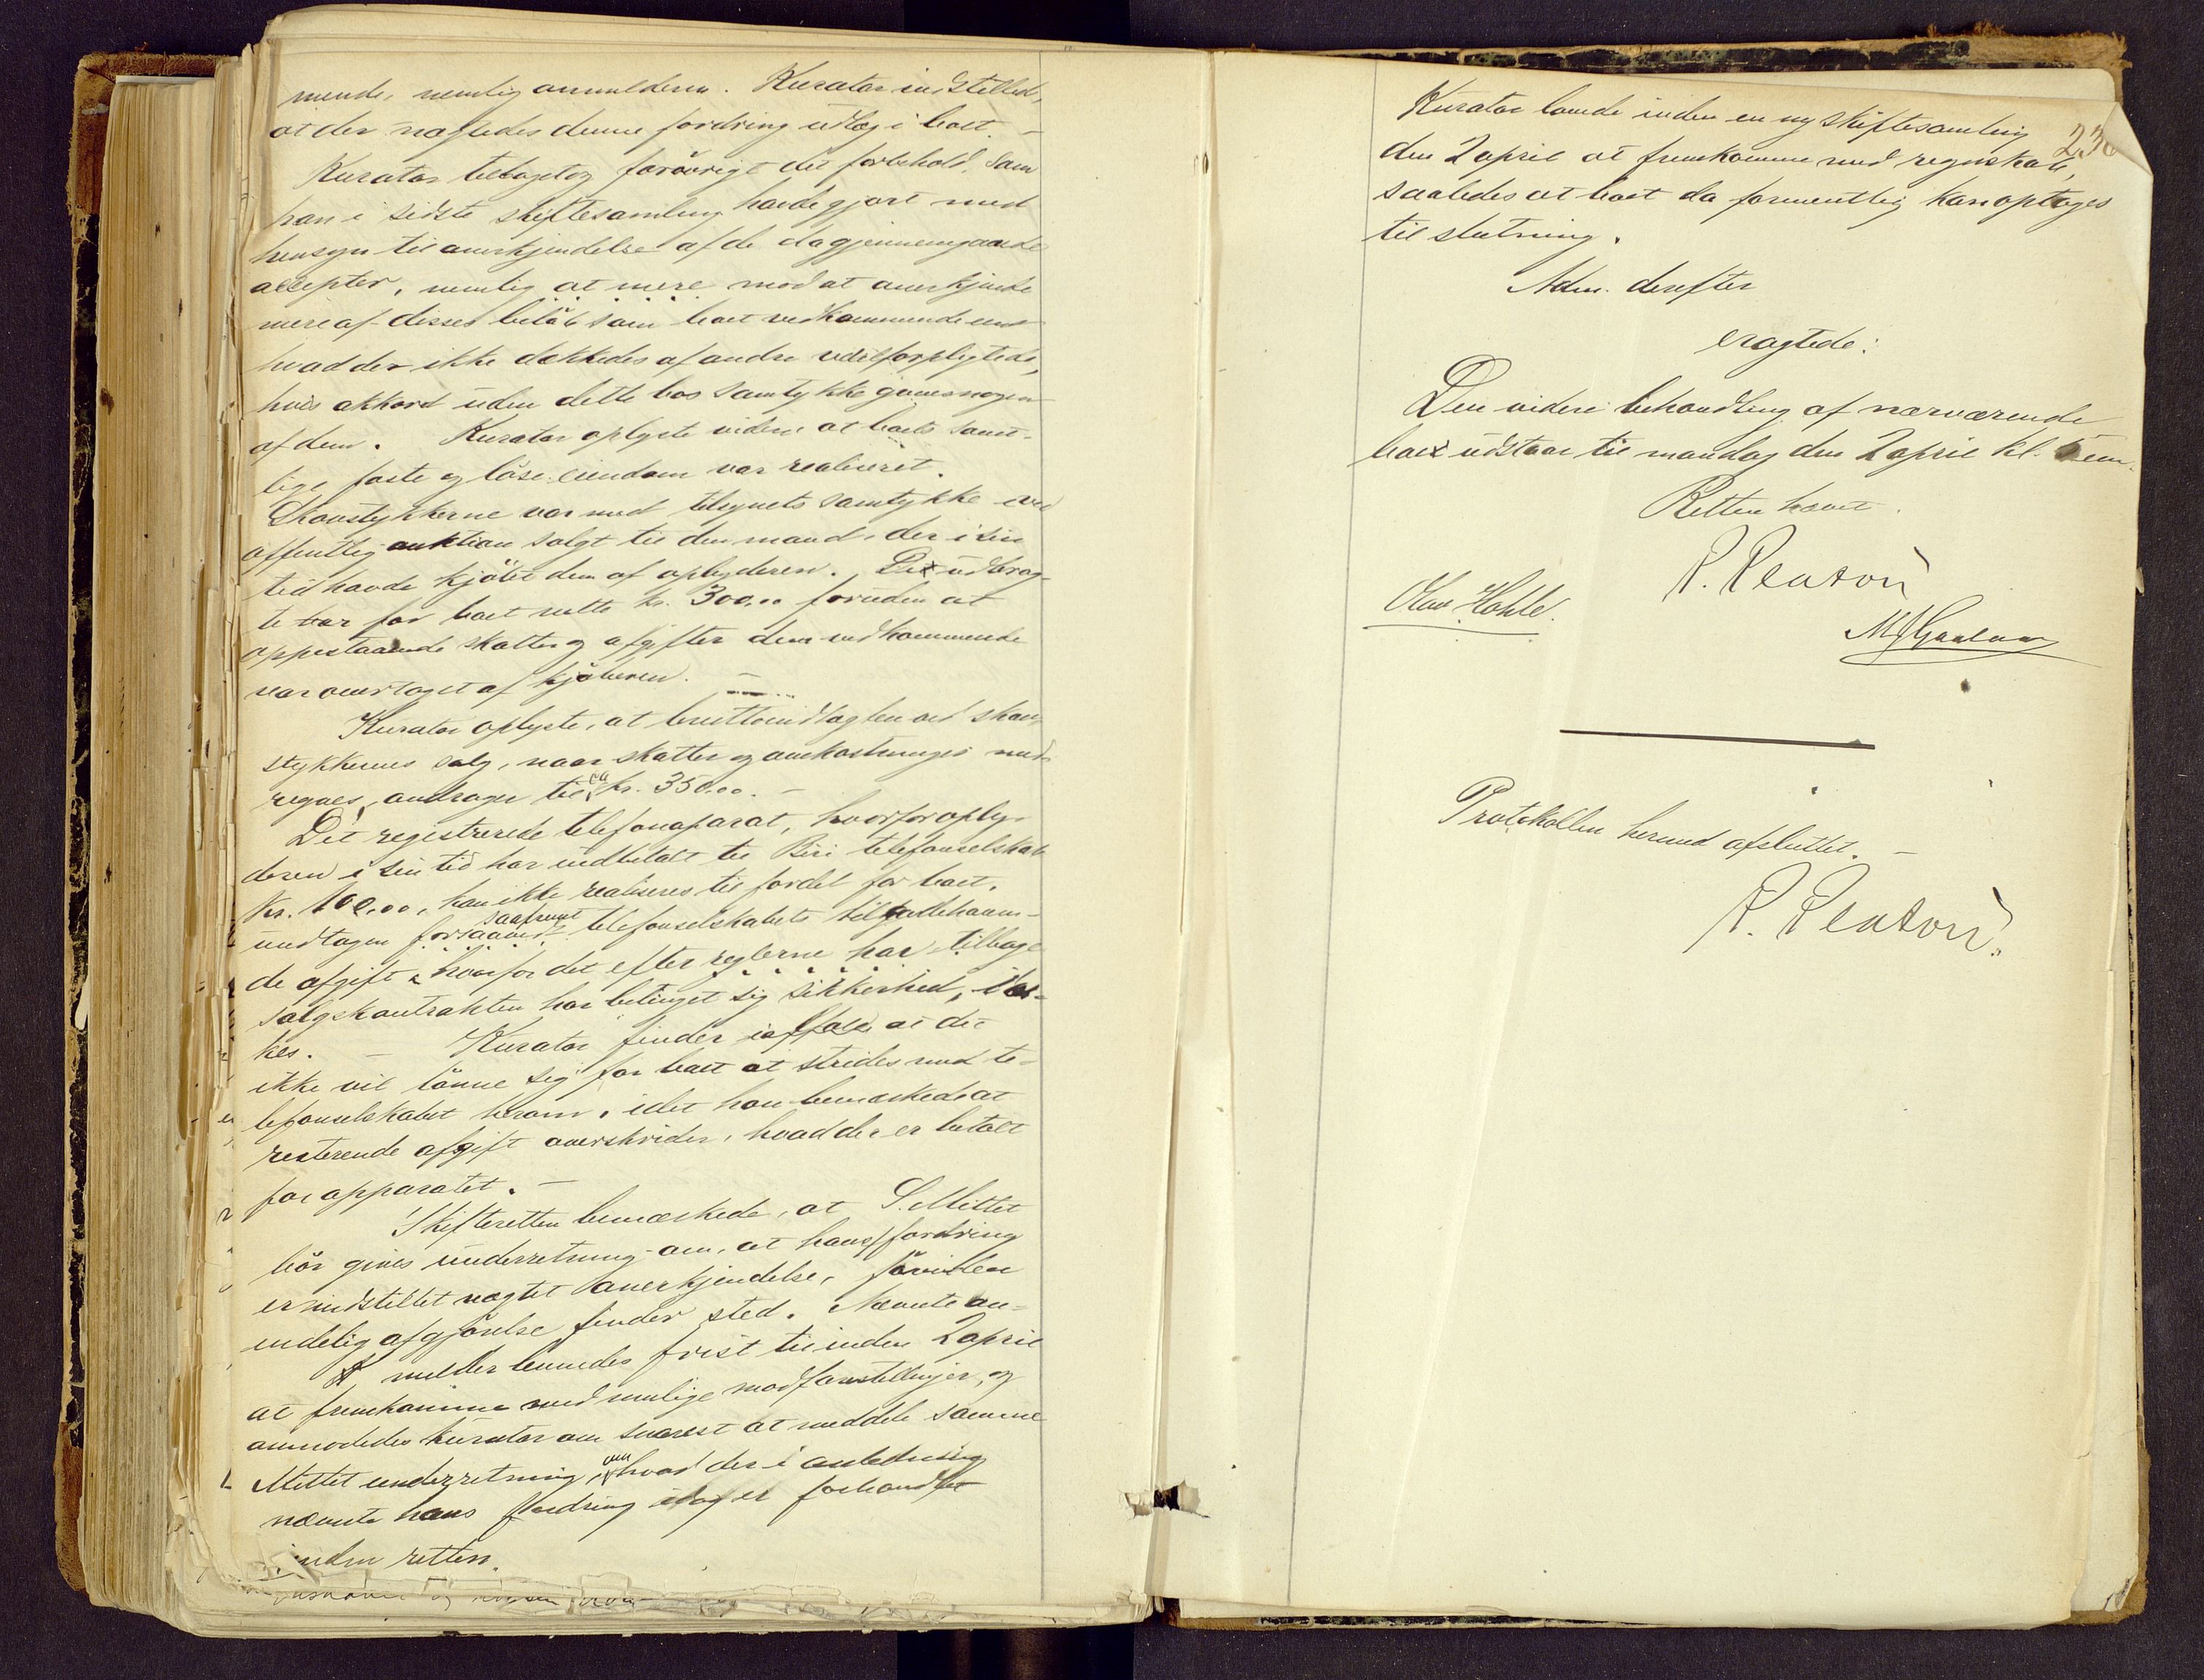 mende, nemlig anmelderen. Kurator indstillede,
at der nægtedes denne fordring udlæg i boet. –
Kurator tilføiet og forøvrigt det forbehold, som
han i sidste skiftesamling havde gjort med
hensyn til anerkjendelse af de da gjennemgaaede
accepter, nemlig at mere mod at anerkjende
mere af disses beløb som boet vedkommende end
hvad der ikke dækkedes af andre vexelforpligtede,
hvis akkord uden dette bos samtykke gaves nogen
af dem. Kurator oplyste videre at boets samt-
lige faste og løse eiendom var realiseret.
Skovstykkerne var med tilsynets samtykke ved
offentlig auktion solgt til den mand, der i sin
tid havde kjøbt dem af opbyderen. De udbrag-
te bar for boet netto kr. 300,00 foruden at
oppestaaende skatter og afgifter dem vedkommende
var overtaget af kjøberen. –
Kurator oplyste, at bruttoindtægten ved skov
stykkernes salg, naar skatter og omkostninger med-
regnes, andrager til ca kr. 350,00. –
Det registrerede telefonaparat, hvorfor opby-
deren i sin tid har indbetalt til Biri telefonselskab
Kr. 100,00, kan ikke realiseres til fordel for boet,
undtagen forsaavidt saafremt telefonselskabets tilgodehaven-
de afgift, hvorfor det efter reglerne har tilbage
salgskontrakten har betinget sig sikkerhed, dæk-
kes. – Kurator finder ialfald at det
ikke vil lønne sig for boet at strides med te-
lefonselskabet herom, idet han bemærkede at
resterende afgift overskrider, hvad der er betalt
for apparatet. –
Skifteretten bemærkede, at S. Mittet
bør gives underretning om, at hans fordring
er indstillet nægtet anerkjendelse, førinden
endelig afgjørelse finder sted. Nævnte an-
melder levnedes frist til inden 2 april
at fremkomme med mulige modforestillinger, og
anmodedes kurator om snarest at meddele samme
Mittet underretning om hvad der i anledning
nævnte hans fordring idag er forhandlet
inden retten.
23
Kurator lovede inden en ny skiftesamling
den 2 april at fremkomme med regnskab,
saaledes at boet da formentlig kan optages
til slutning.
Adm. derefter
eragtede:
Den videre behandling af nærværende
bo udstaar til mandag den 2 april kl. 5 em.
Retten hævet.
R. Renton
Olav Hohle.
M J Gaalaas
Protokollen hermed afsluttet. –
R. Renton.